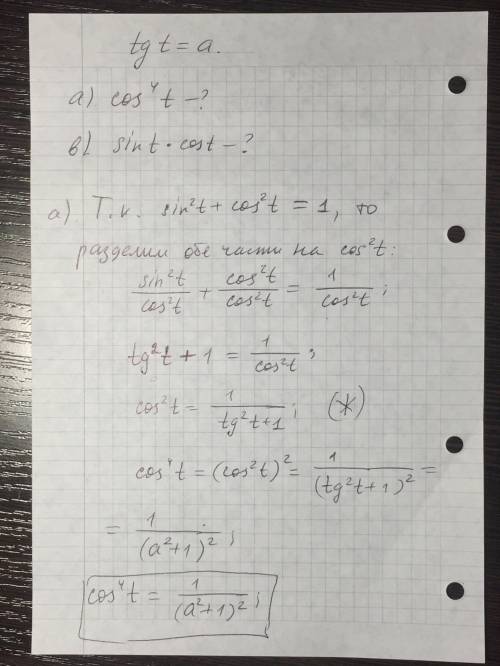 tg t = a.
а) cos⁴t – ?
в) sint · cost – ?
а) Т.к. sin²t + cos²t = 1, то
разделим обе части на cos²t:
sin²t/cos²t + cos²t/cos²t = 1/cos²t;
tg²t + 1 = 1/cos²t;
cos²t = 1/(tg²t+1); (*)
cos⁴t = (cos²t)² = 1/(tg²t+1)² =
= 1/(a²+1)²;
cos⁴t = 1/(a²+1)²;